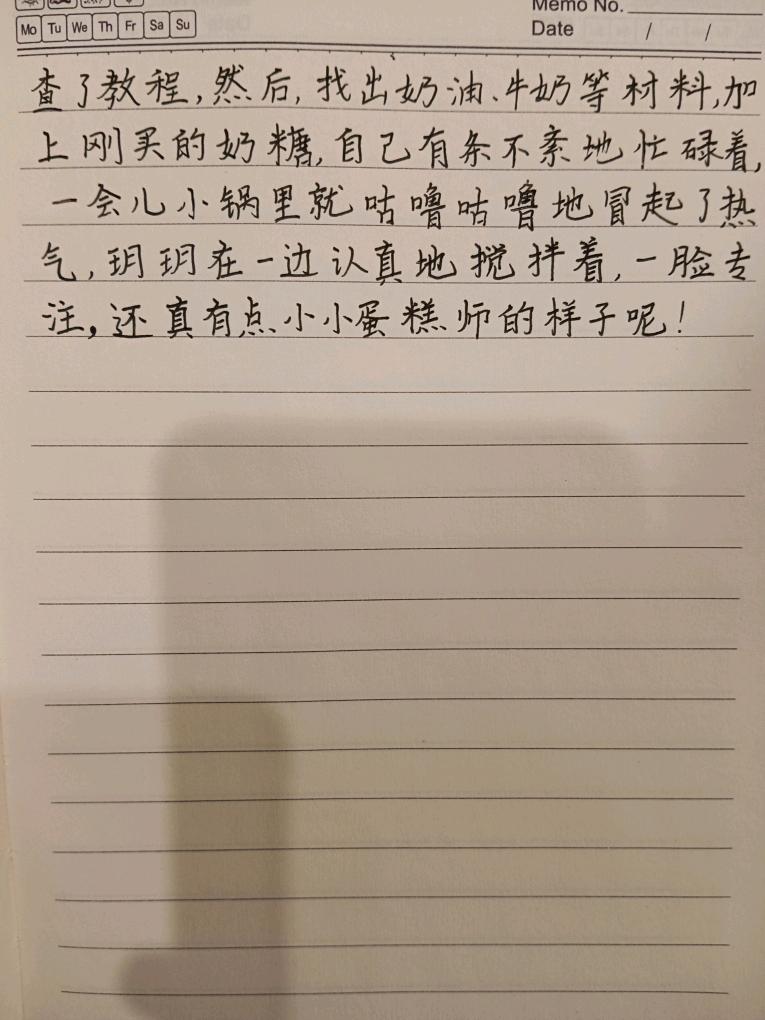 Memo No.
Mo Tu We Th Fr Sa Su
Date / /
查了教程,然后,找出奶油、牛奶等材料,加
上刚买的奶糖,自己有条不紊地忙碌着,
一会儿小锅里就咕噜咕噜地冒起了热
气,玥玥在一边认真地搅拌着,一脸专
注,还真有点小小蛋糕师的样子呢!